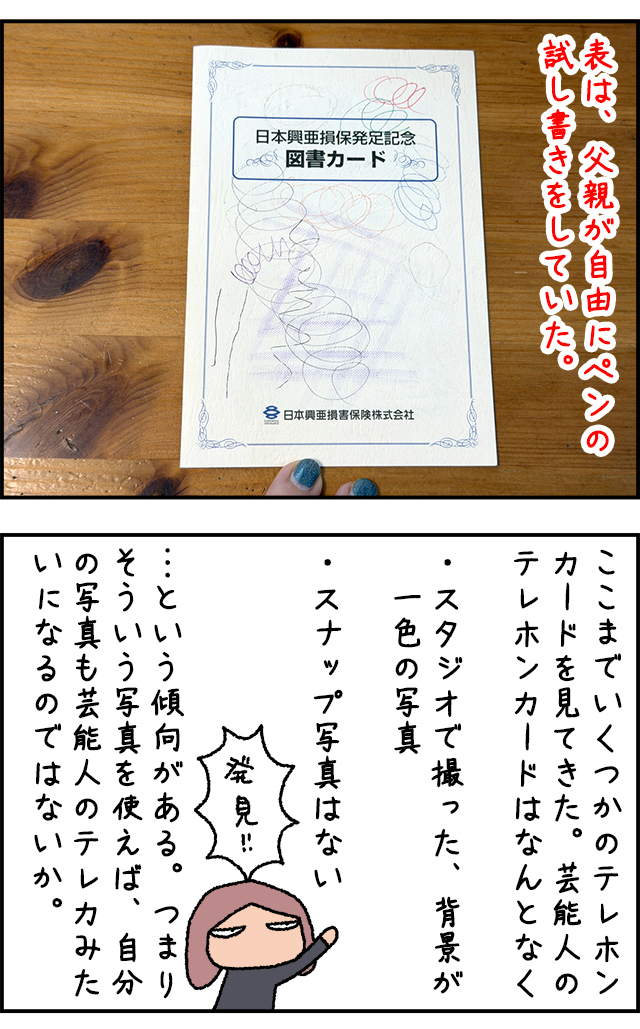 表は、父親が自由にペンの
試し書きをしていた。
日本興亜損保発足記念
図書カード
日本興亜損害保険株式会社
ここまでいくつかのテレホン
カードを見てきた。芸能人の
テレホンカードはなんとなく
・スタジオで撮った、背景が
一色の写真
・スナップ写真はない
…という傾向がある。つまり
そういう写真を使えば、自分
の写真も芸能人のテレカみた
いになるのではないか。
発見!!